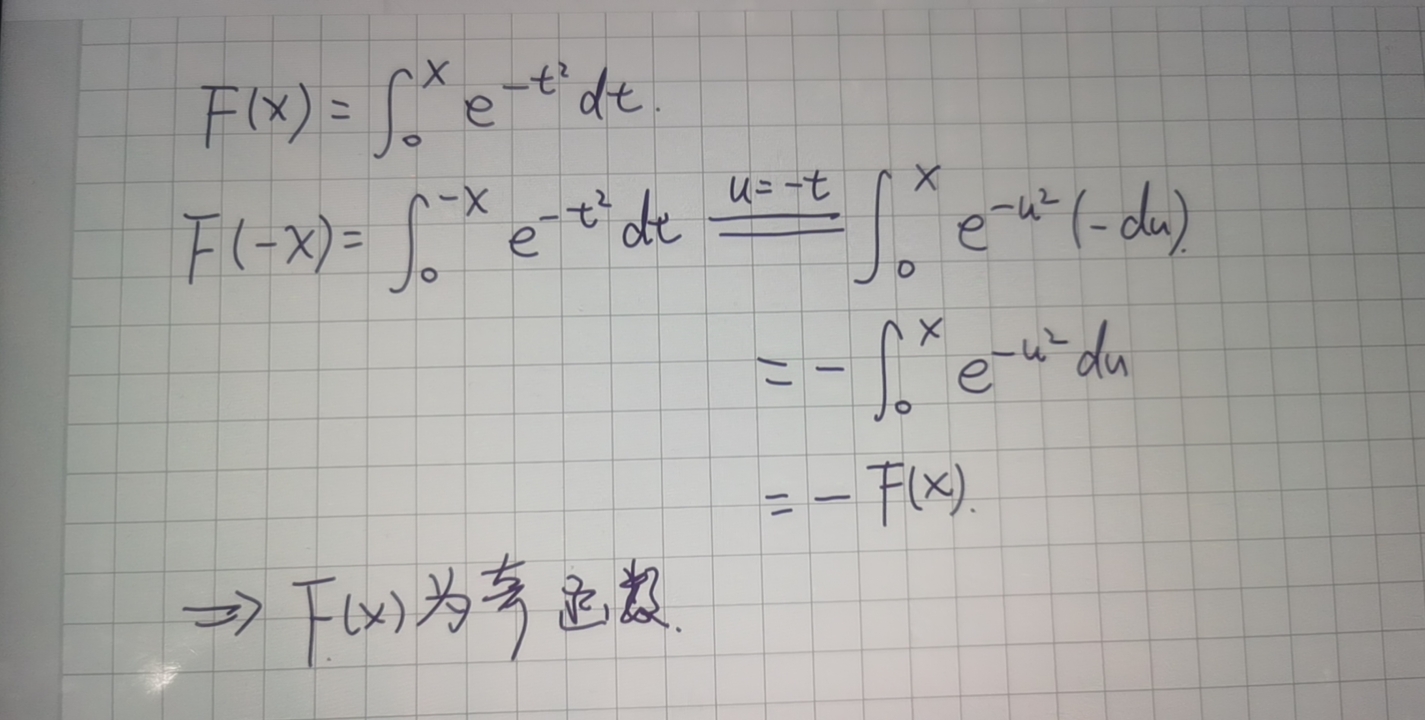 F(x) = ∫₀ˣ e^{-t²} dt.
F(-x) = ∫₀^{-x} e^{-t²} dt \overset{u=-t}{=} ∫₀ˣ e^{-u²} (-du).
= - ∫₀ˣ e^{-u²} du
= - F(x).
⇒ F(x) 为奇函数.